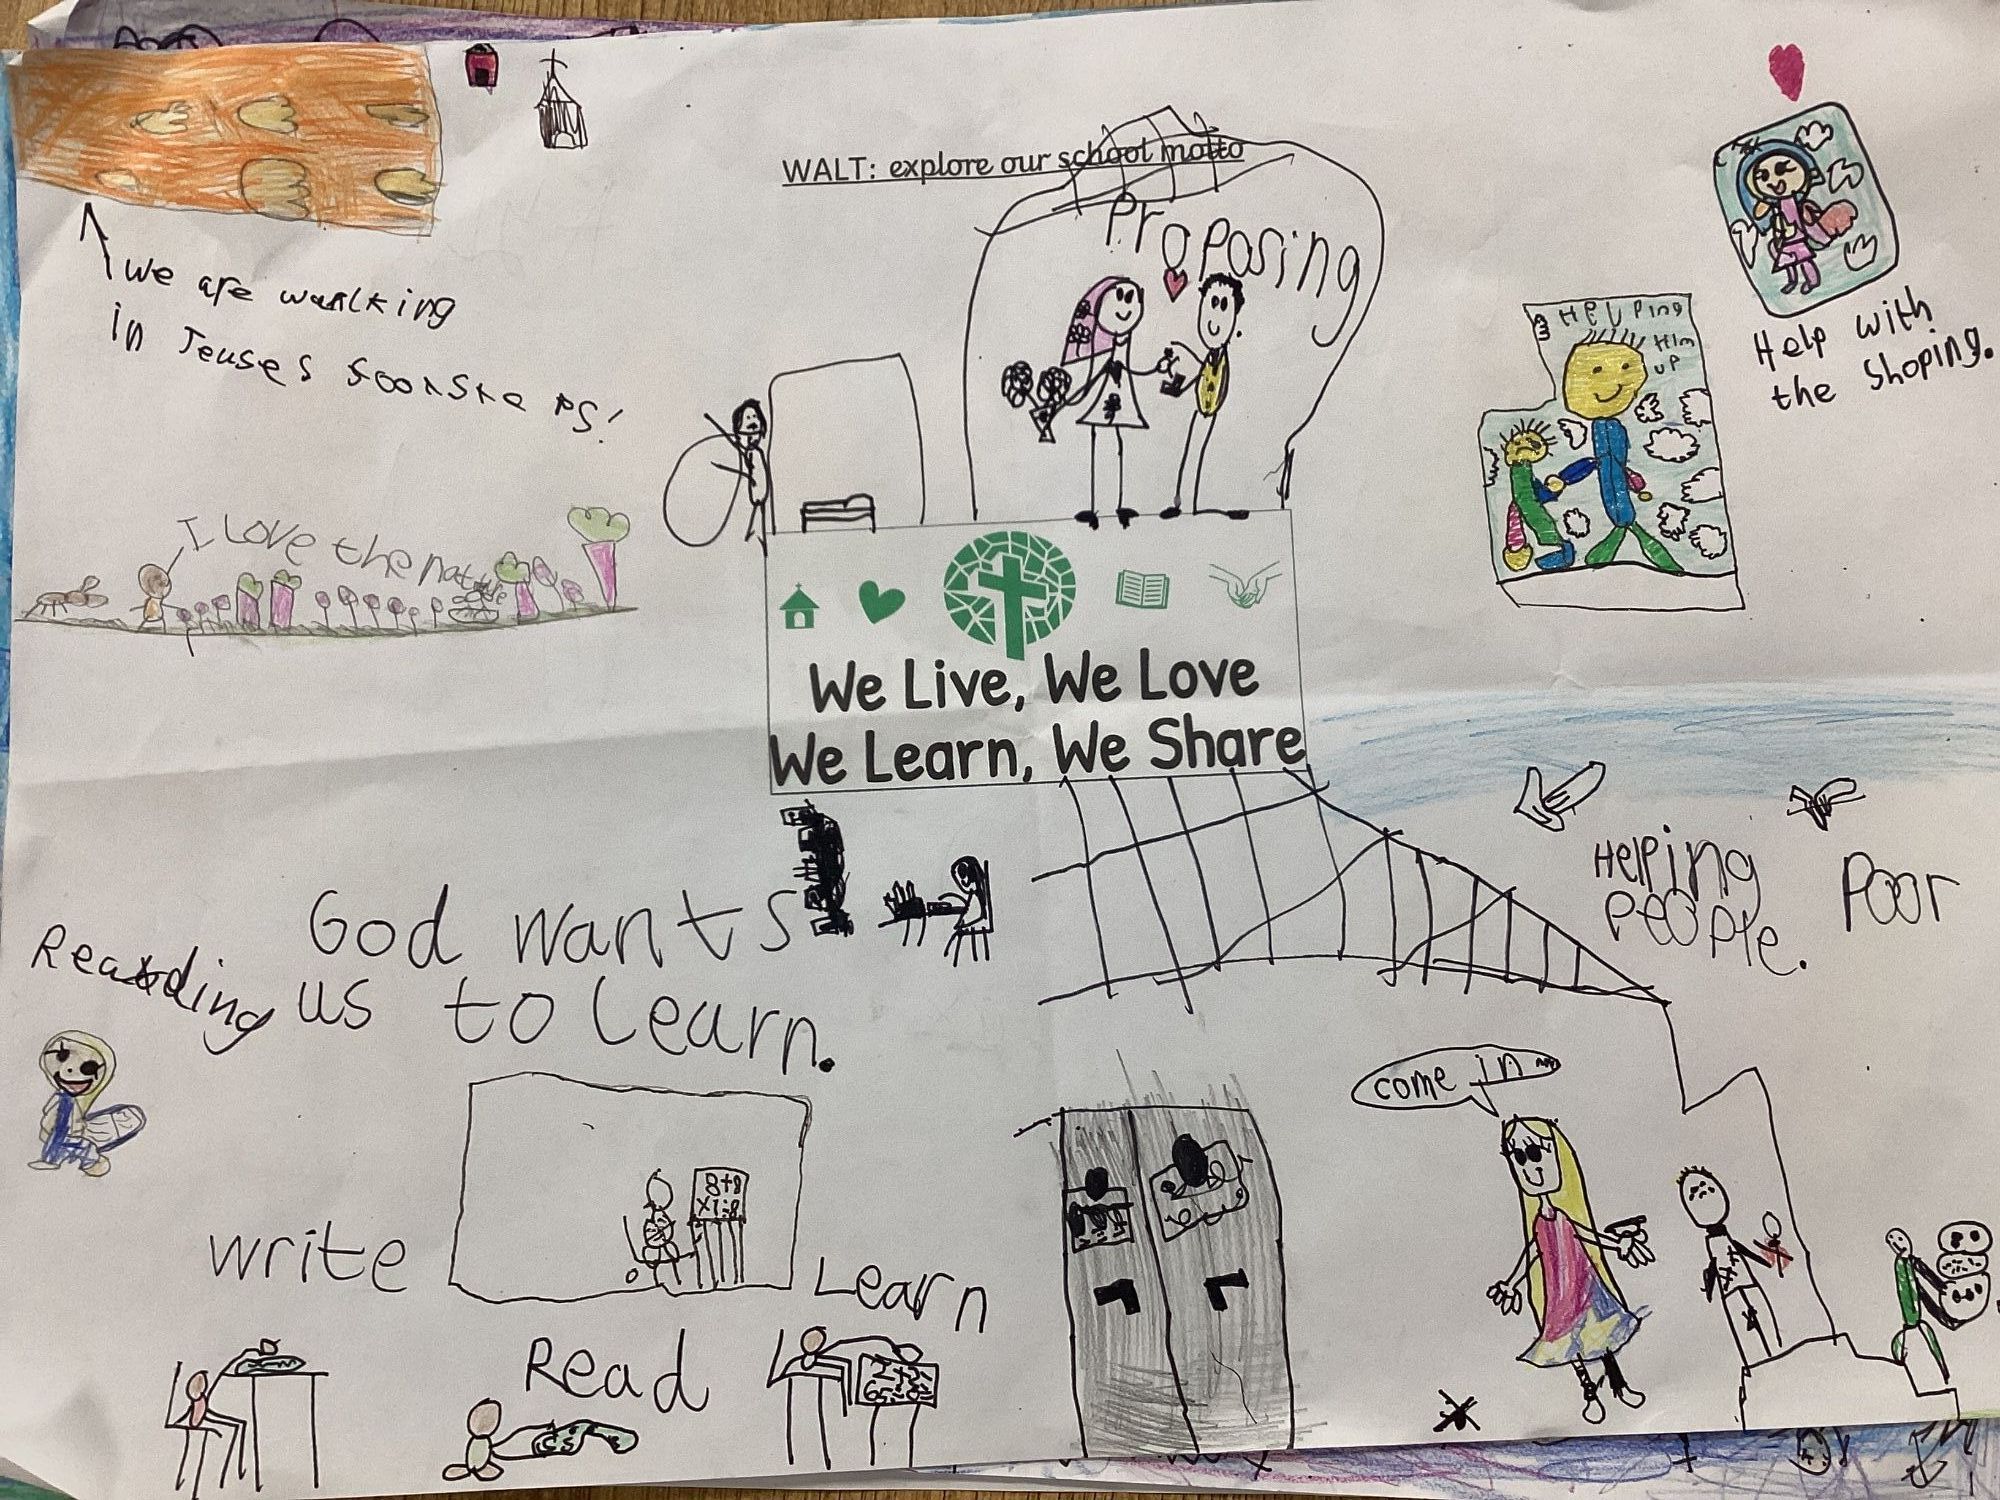 WALT: explore our school motto
Proposing
We are walking
in Jeuses foonste ps!
I love the nature
HELPing
Him
UP
Help with
the shoping.
We Live, We Love
We Learn, We Share
Helping
People.
Poor
God wants
us to learn.
Reading
come in
8+8
write
Learn
Read